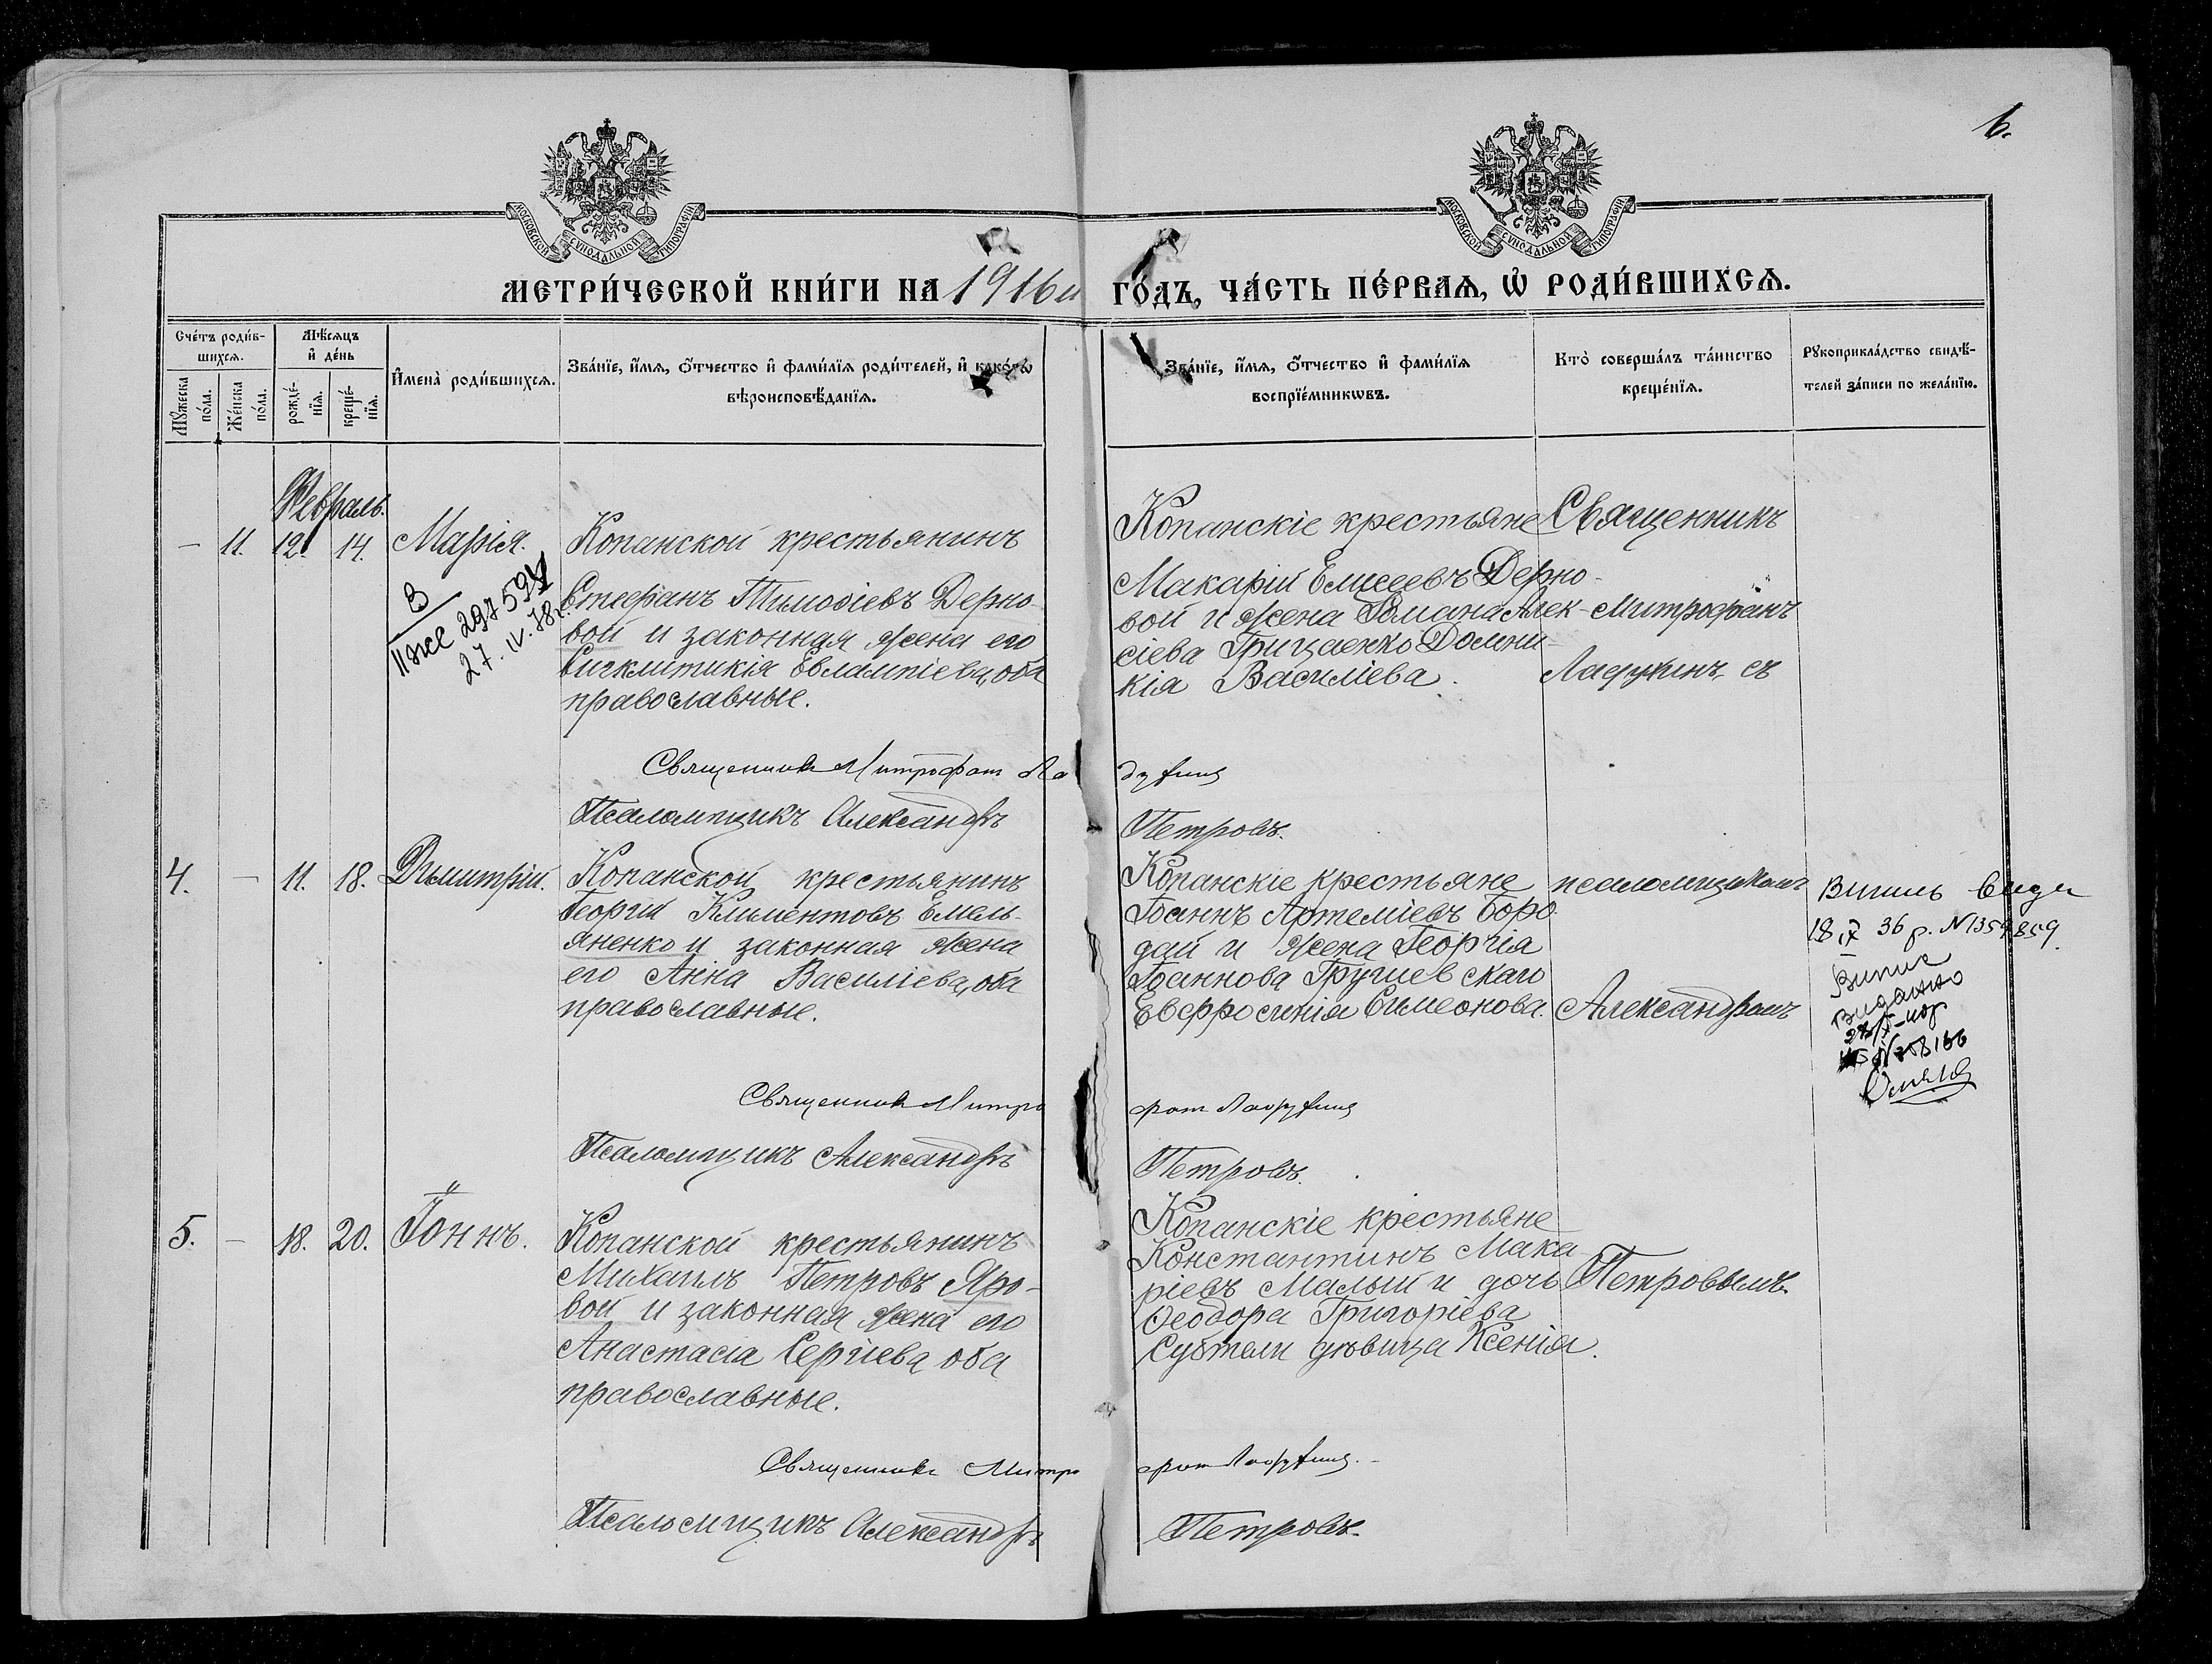 6.
МОСКОВСКОЙ СѴНОДАЛЬНОЙ ТИПОГРАФІИ
МОСКОВСКОЙ СѴНОДАЛЬНОЙ ТИПОГРАФІИ
МЕТРИ́ЧЕСКОЙ КНИ́ГИ НА 1916й ГО́ДЪ, ЧА́СТЬ ПЕ́РВАѦ, Ѡ҆ РОДИ́ВШИХСѦ.
Сче́тъ роди́в-
шихсѧ.
Мꙋ́жеска по́ла.
Же́нска по́ла.
Мѣ́сѧцъ
и҆ де́нь
рожде́-
нїѧ.
креще́-
нїѧ.
И҆мена̀ роди́вшихсѧ.
Зва́нїе, и҆́мѧ, ѻ҆́тчество и҆ фами́лїѧ роди́телей, и҆ како́гѡ
вѣроисповѣ́данїѧ.
Зва́нїе, и҆́мѧ, ѻ҆́тчество и҆ фами́лїѧ
воспрїе́мникѡвъ.
Кто̀ соверша́лъ та́инство
креще́нїѧ.
Рꙋкоприкла́дство свидѣ́-
телей за́писи по жела́нїю.
Февраль.
— 11. 12. 14. Марія.
27. IV. 78г.
Копанской крестьянинъ
Стефанъ Тимоѳіевъ Дерко-
вой и законная жена его
Сигклитикія Евлампіева, оба
православные.
Копанскіе крестьяне
Макарій Елисеевъ Дерко-
вой и жена Романа Алек-
сіева Грицаенко Домни-
кія Василіева.
Священникъ
Митрофанъ
Ладухинъ съ
Священникъ Митрофанъ Ладухинъ
Псаломщикъ Александръ Петровъ.
4. — 11. 18. Димитрій.
Копанской крестьянинъ
Георгій Климентовъ Емель-
яненко и законная жена
его Анна Василіева, оба
православные.
Копанскіе крестьяне
Іоаннъ Артеміевъ Боро-
дай и жена Георгія
Іоаннова Грушевскаго
Евфросинія Симеонова.
псаломщикомъ
Александромъ
18 IX 36 р. N1359859
Випис
видано
Священникъ Митрофанъ Ладухинъ
Псаломщикъ Александръ Петровъ.
5. — 18. 20. Іоннъ.
Копанской крестьянинъ
Михаилъ Петровъ Яро-
вой и законная жена его
Анастасія Сергіева, оба
православные.
Копанскіе крестьяне
Константинъ Мака-
ріевъ Малый и дочь
Ѳеодора Григоріева
дѣвица Ксенія.
Петровымъ.
Священникъ Митрофанъ Ладухинъ.
Псаломщикъ Александръ Петровъ.